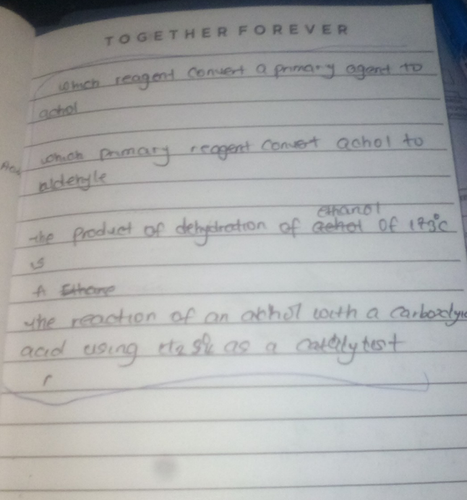 TOGETHER FOREVER
which reagent convert a primary agent to
achol
which primary reagent convert achol to
aldehyle
ethanol
the product of dehydration of achol of 173°C
is
A Ethane
the reaction of an ahhol with a carboxlyic
acid using H2 as a catalytest
r